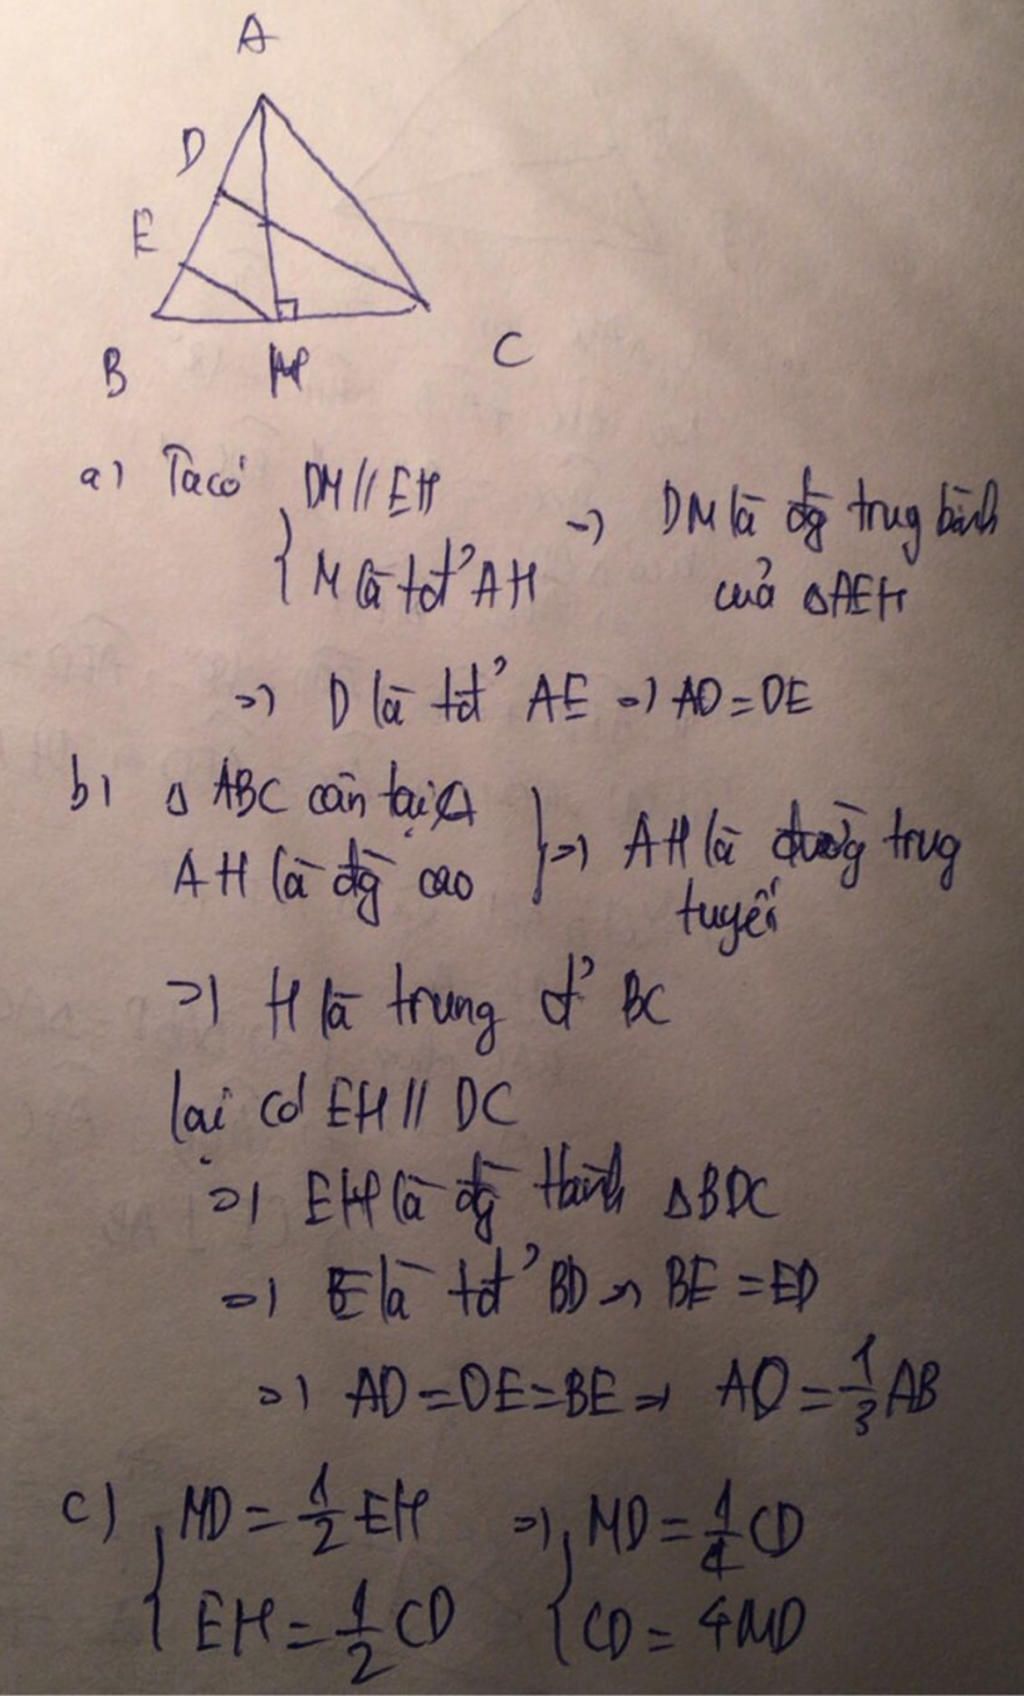 A
D
E
B H C
a) Ta có { DM // EH
M là tđ' AH => DM là đg trug bình của ΔAEH
=> D là tđ' AE => AD = DE
b) Δ ABC cân tại A
AH là đg cao } => AH là đường trug tuyến
=> H là trung đ' BC
lại có EH // DC
=> EH là đg tbình ΔBDC
=> E là tđ' BD => BE = ED
=> AD = DE = BE => AD = 1/3 AB
c) { MD = 1/2 EH => { MD = 1/4 CD
EH = 1/2 CD CD = 4MD